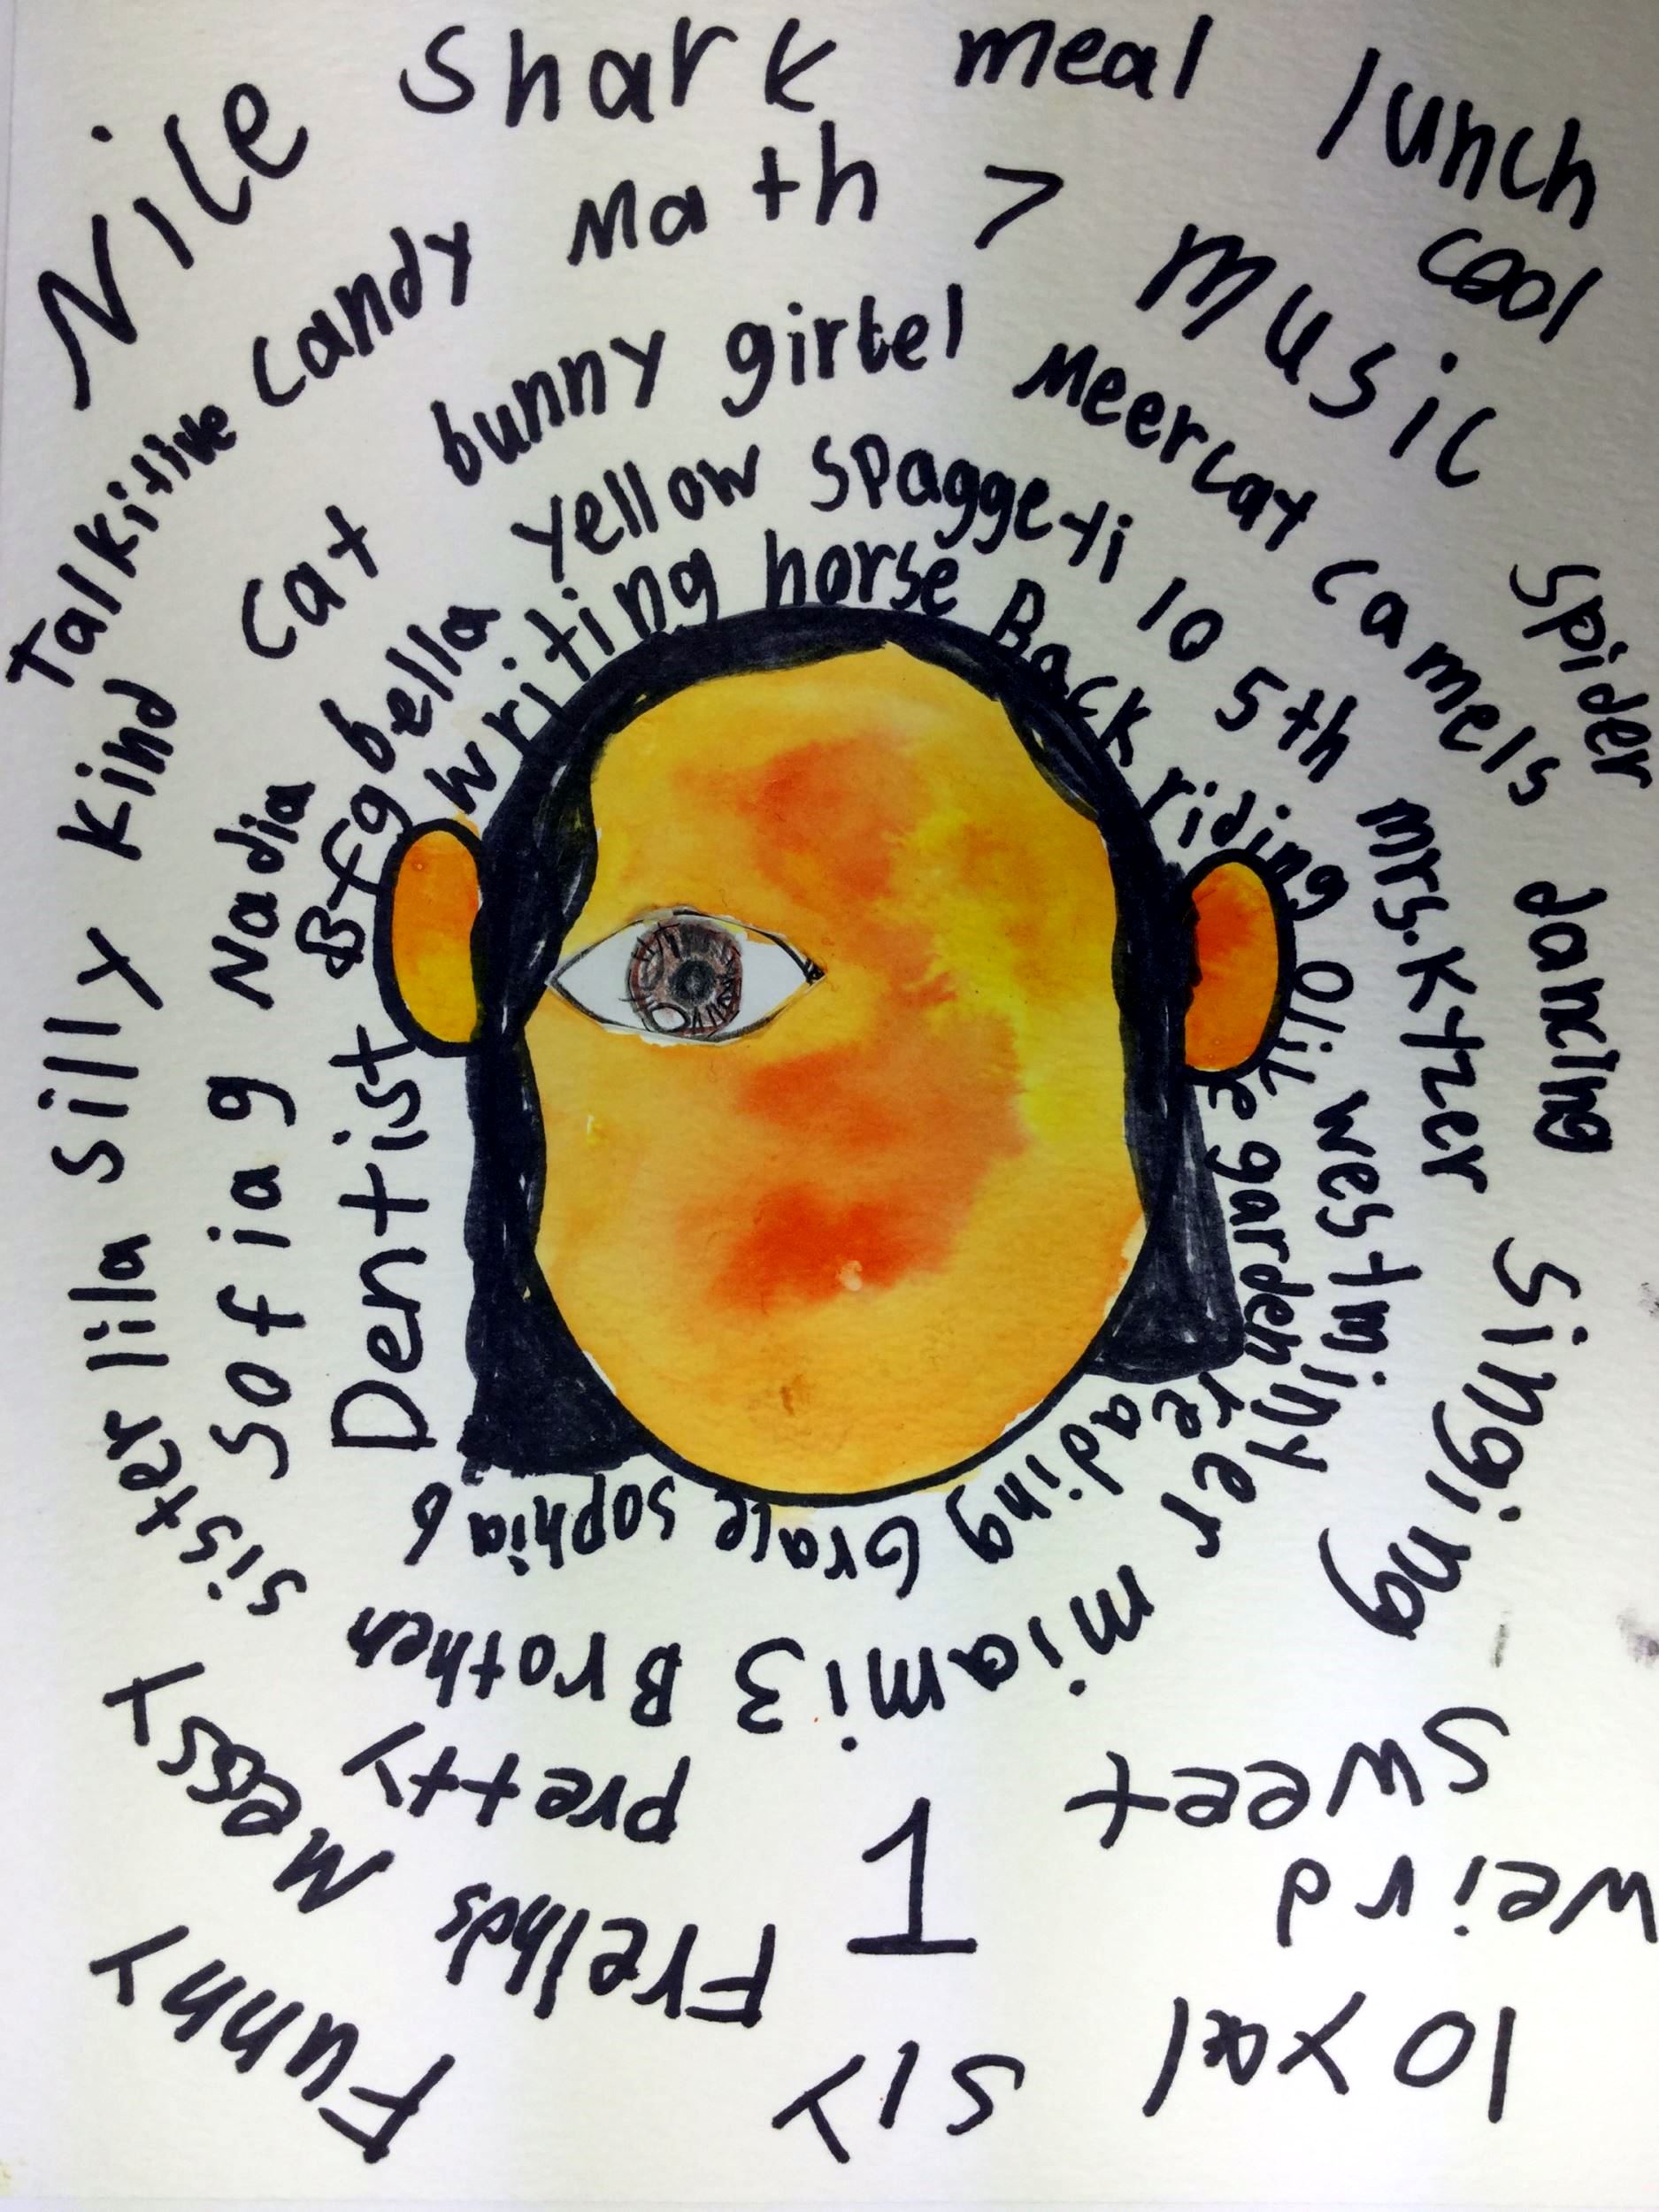 writing horse Back riding Olive garden reading Grace sophia 6
Dentist Bfg bella yellow spaggeti 10 5th mrs.Kyzer
miami 3 Brother sister lila silly kind
Sofia 9 Nadia cat bunny girtel Meercat camels
Talkitive candy Math 7 music
spider dancing singing
sweet 1 pretty messy
Nice shark meal lunch cool
weird
loyal sly Freinds Funny